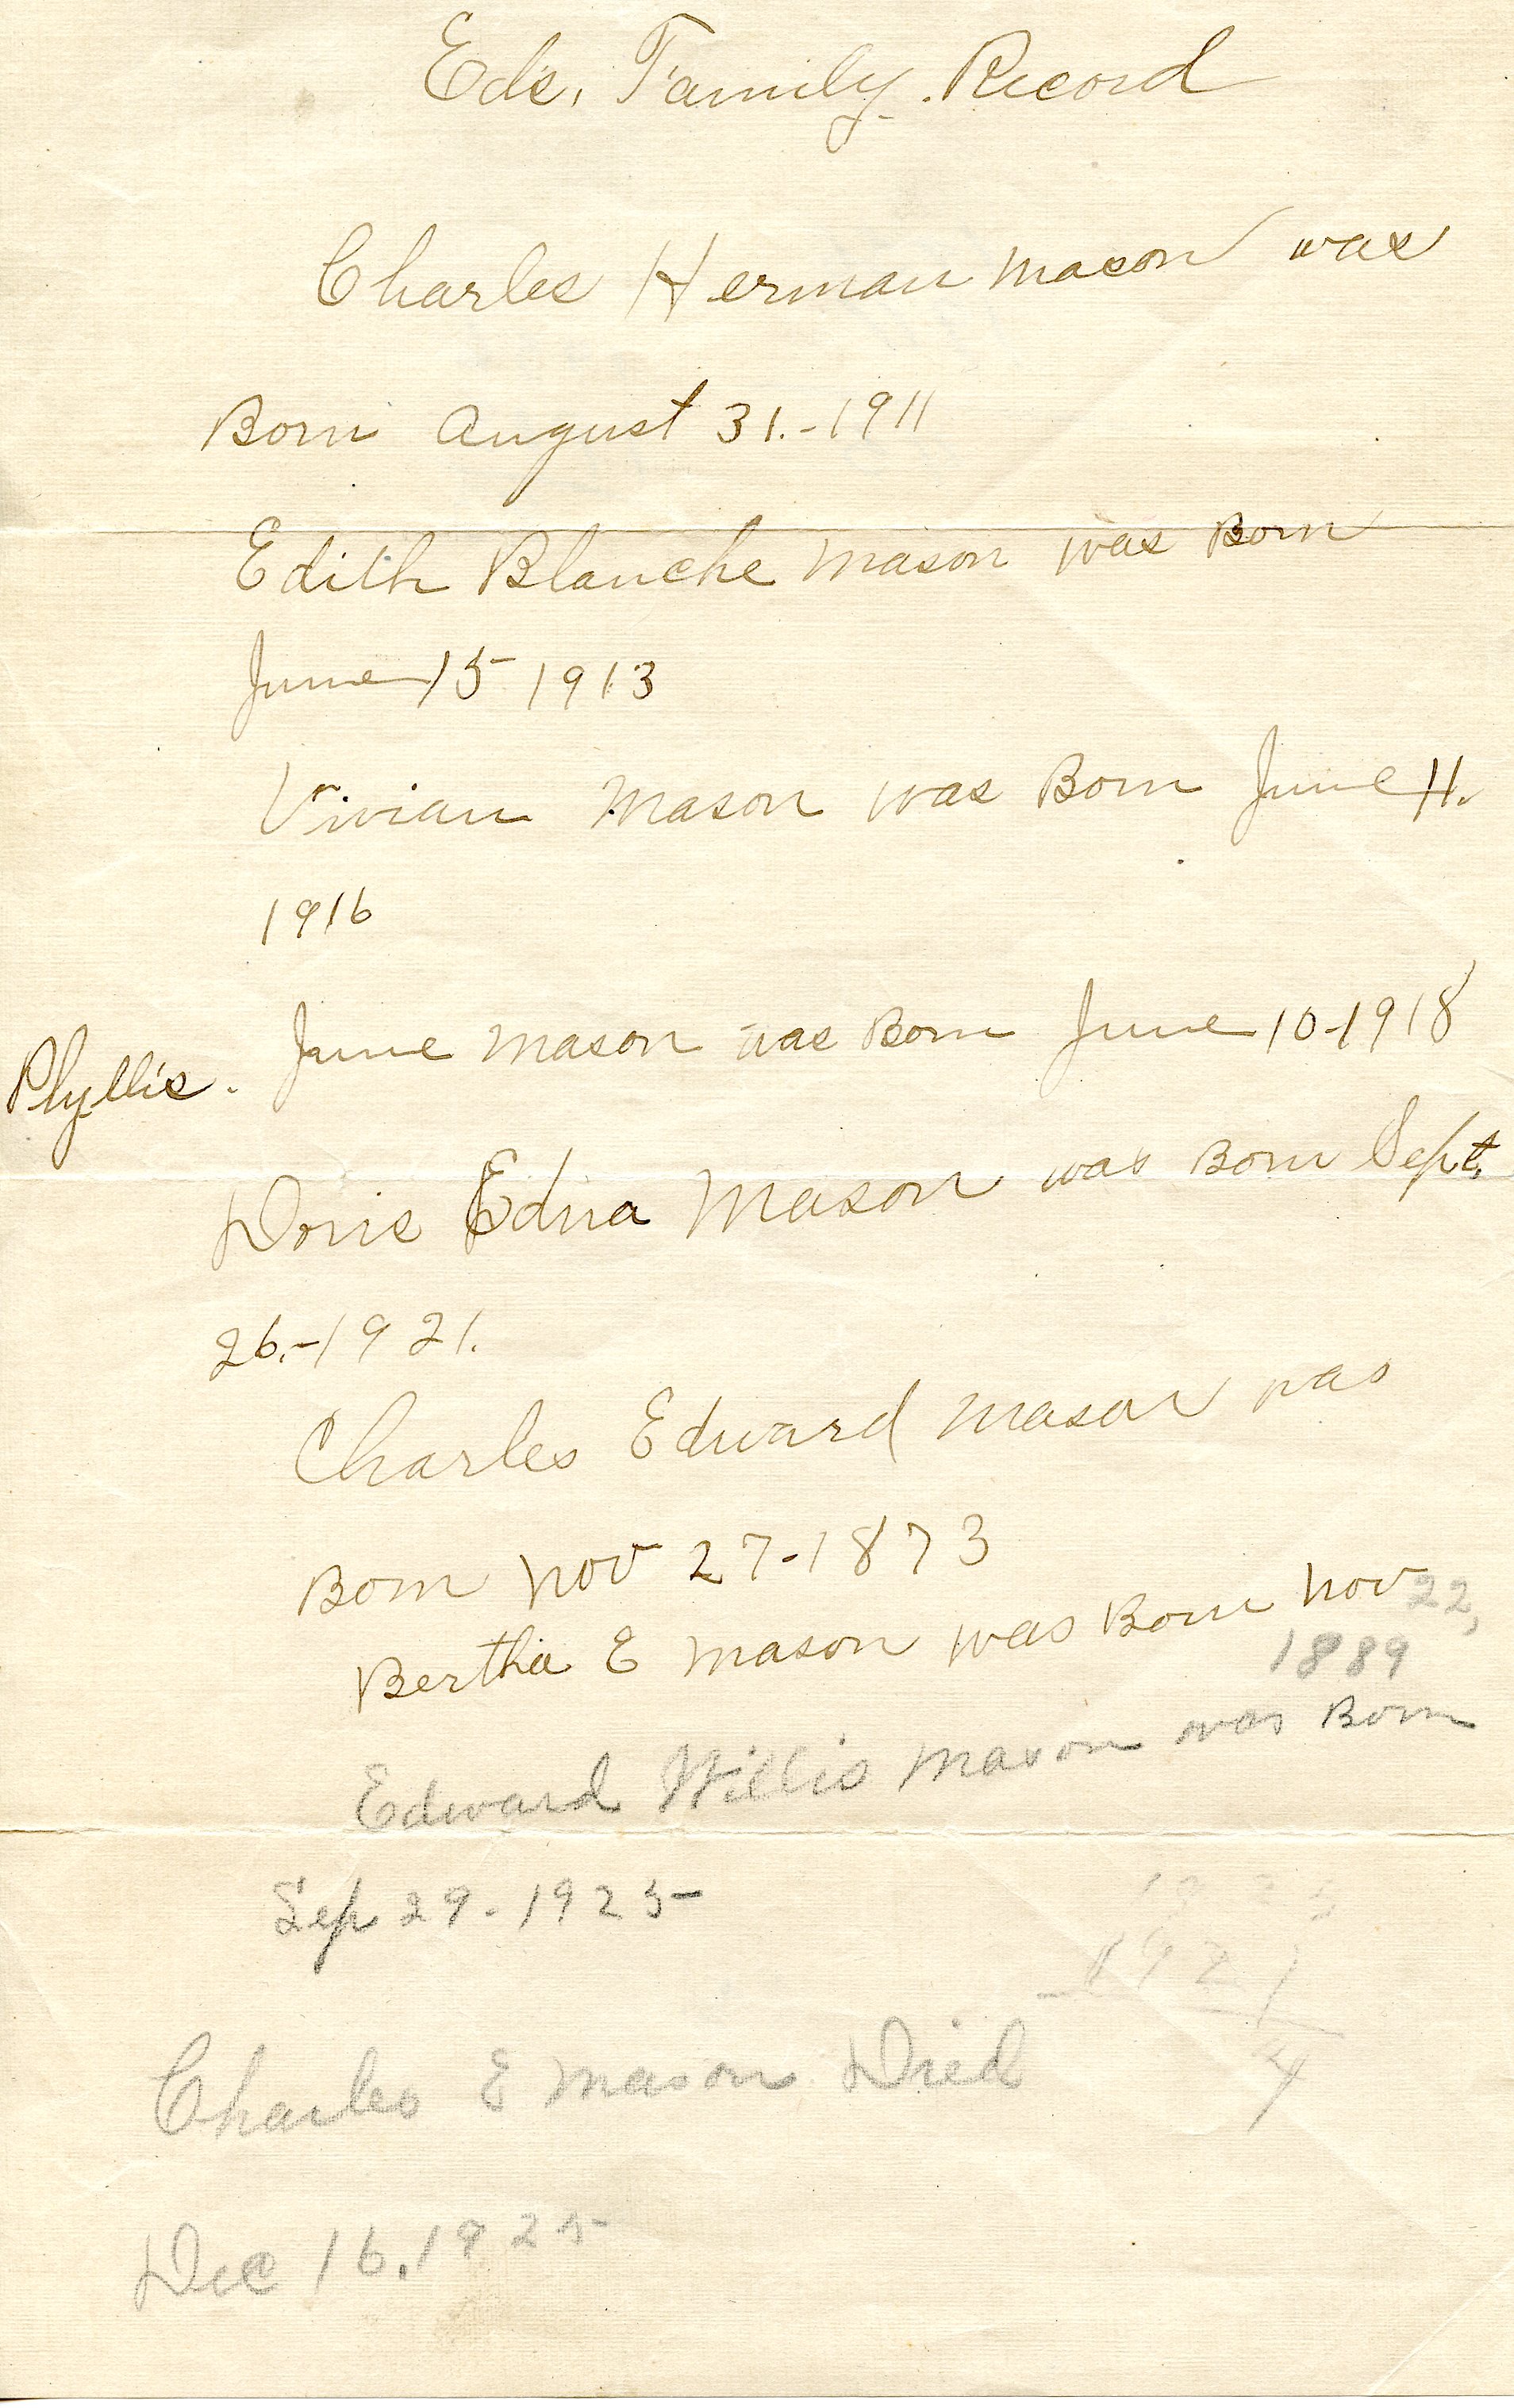 Ed's. Family. Record
Charles Herman Mason was
Born August 31.-1911
Edith Blanche Mason was Born
June 15 1913
Vivian Mason was Born June 11.
1916
Phyllis. June Mason was Born June 10-1918
Doris Edna Mason was Born Sept.
26.-1921.
Charles Edward Mason was
Born Nov 27-1873
Bertha E Mason was Born Nov 22,
1889
Edward Willis Mason was Born
Sep 29.-1925
1921
4
Charles E Mason Died
Dec 16.1925